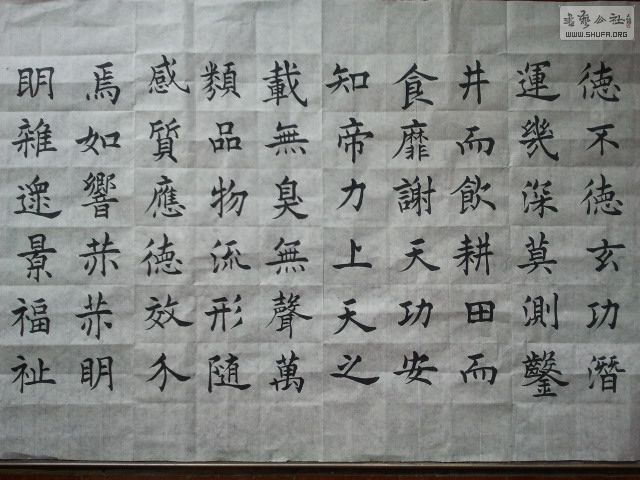 書藝公社
WWW.SHUFA.ORG
德不德玄功潛
運幾深莫測鑿
井而飲耕田而
食靡謝天功安
知帝力上天之
載無臭無聲萬
類品物流形随
感質應德效介
焉如響明
明雜遝景福祉